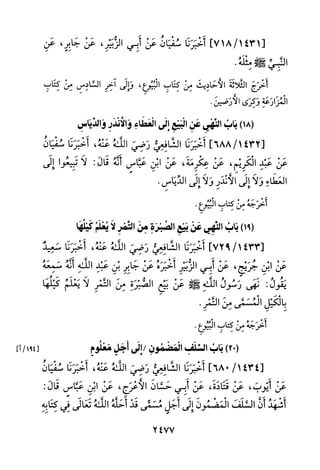 [١٤٣١/ ٧١٨] أَخْبَرَنَا سُفْيَانُ عَنْ أَبِي الزُّبَيْرِ، عَنْ جَابِرٍ، عَنِ
النَّبِيِّ ﷺ مِثْلَهُ.
أَخْرَجَ الثَّلَاثَةَ الْأَحَادِيثَ مِنْ كِتَابِ الْبُيُوعِ، وَإِلَى آخِرِ السَّادِسِ مِنْ كِتَابِ
الْمُزَارَعَةِ وَكِرَى الْأَرَضِينَ.
(١٨) بَابُ النَّهْيِ عَنِ الْبَيْعِ إِلَى الْعَطَاءِ وَالْأَنْدَرِ وَالدِّيَاسِ
[١٤٣٢/ ٦٨٨] أَخْبَرَنَا الشَّافِعِيُّ رَضِيَ اللَّهُ عَنْهُ، أَخْبَرَنَا سُفْيَانُ
عَنْ عَبْدِ الْكَرِيمِ، عَنْ عِكْرِمَةَ، عَنِ ابْنِ عَبَّاسٍ أَنَّهُ قَالَ: لَا تَبِيعُوا إِلَى
الْعَطَاءِ وَلَا إِلَى الْأَنْدَرِ وَلَا إِلَى الدِّيَاسِ.
أَخْرَجَهُ مِنْ كِتَابِ الْبُيُوعِ.
(١٩) بَابُ النَّهْيِ عَنْ بَيْعِ الصُّبْرَةِ مِنَ التَّمْرِ لَا يُعْلَمُ كَيْلُهَا
[١٤٣٣/ ٧٢٩] أَخْبَرَنَا الشَّافِعِيُّ رَضِيَ اللَّهُ عَنْهُ، أَخْبَرَنَا سَعِيدٌ
عَنِ ابْنِ جُرَيْجٍ، عَنْ أَبِي الزُّبَيْرِ أَخْبَرَهُ عَنْ جَابِرِ بْنِ عَبْدِ اللَّهِ أَنَّهُ سَمِعَهُ
يَقُولُ: نَهَى رَسُولُ اللَّهِ ﷺ عَنْ بَيْعِ الصُّبْرَةِ مِنَ التَّمْرِ لَا يُعْلَمُ كَيْلُهَا
بِالْكَيْلِ الْمُسَمَّى مِنَ التَّمْرِ.
أَخْرَجَهُ مِنْ كِتَابِ الْبُيُوعِ.
(٢٠) بَابُ السَّلَفِ الْمَضْمُونِ /إِلَى أَجَلٍ مَعْلُومٍ [١٩٤/ أ]
[١٤٣٤/ ٦٨٠] أَخْبَرَنَا الشَّافِعِيُّ رَضِيَ اللَّهُ عَنْهُ، أَخْبَرَنَا سُفْيَانُ
عَنْ أَيُّوبَ، عَنْ قَتَادَةَ، عَنْ أَبِي حَسَّانَ الْأَعْرَجِ، عَنِ ابْنِ عَبَّاسٍ قَالَ:
أَشْهَدُ أَنَّ السَّلَفَ الْمَضْمُونَ إِلَى أَجَلٍ مُسَمًّى قَدْ أَحَلَّهُ اللَّهُ تَعَالَى فِي كِتَابِهِ
٢٤٧٧